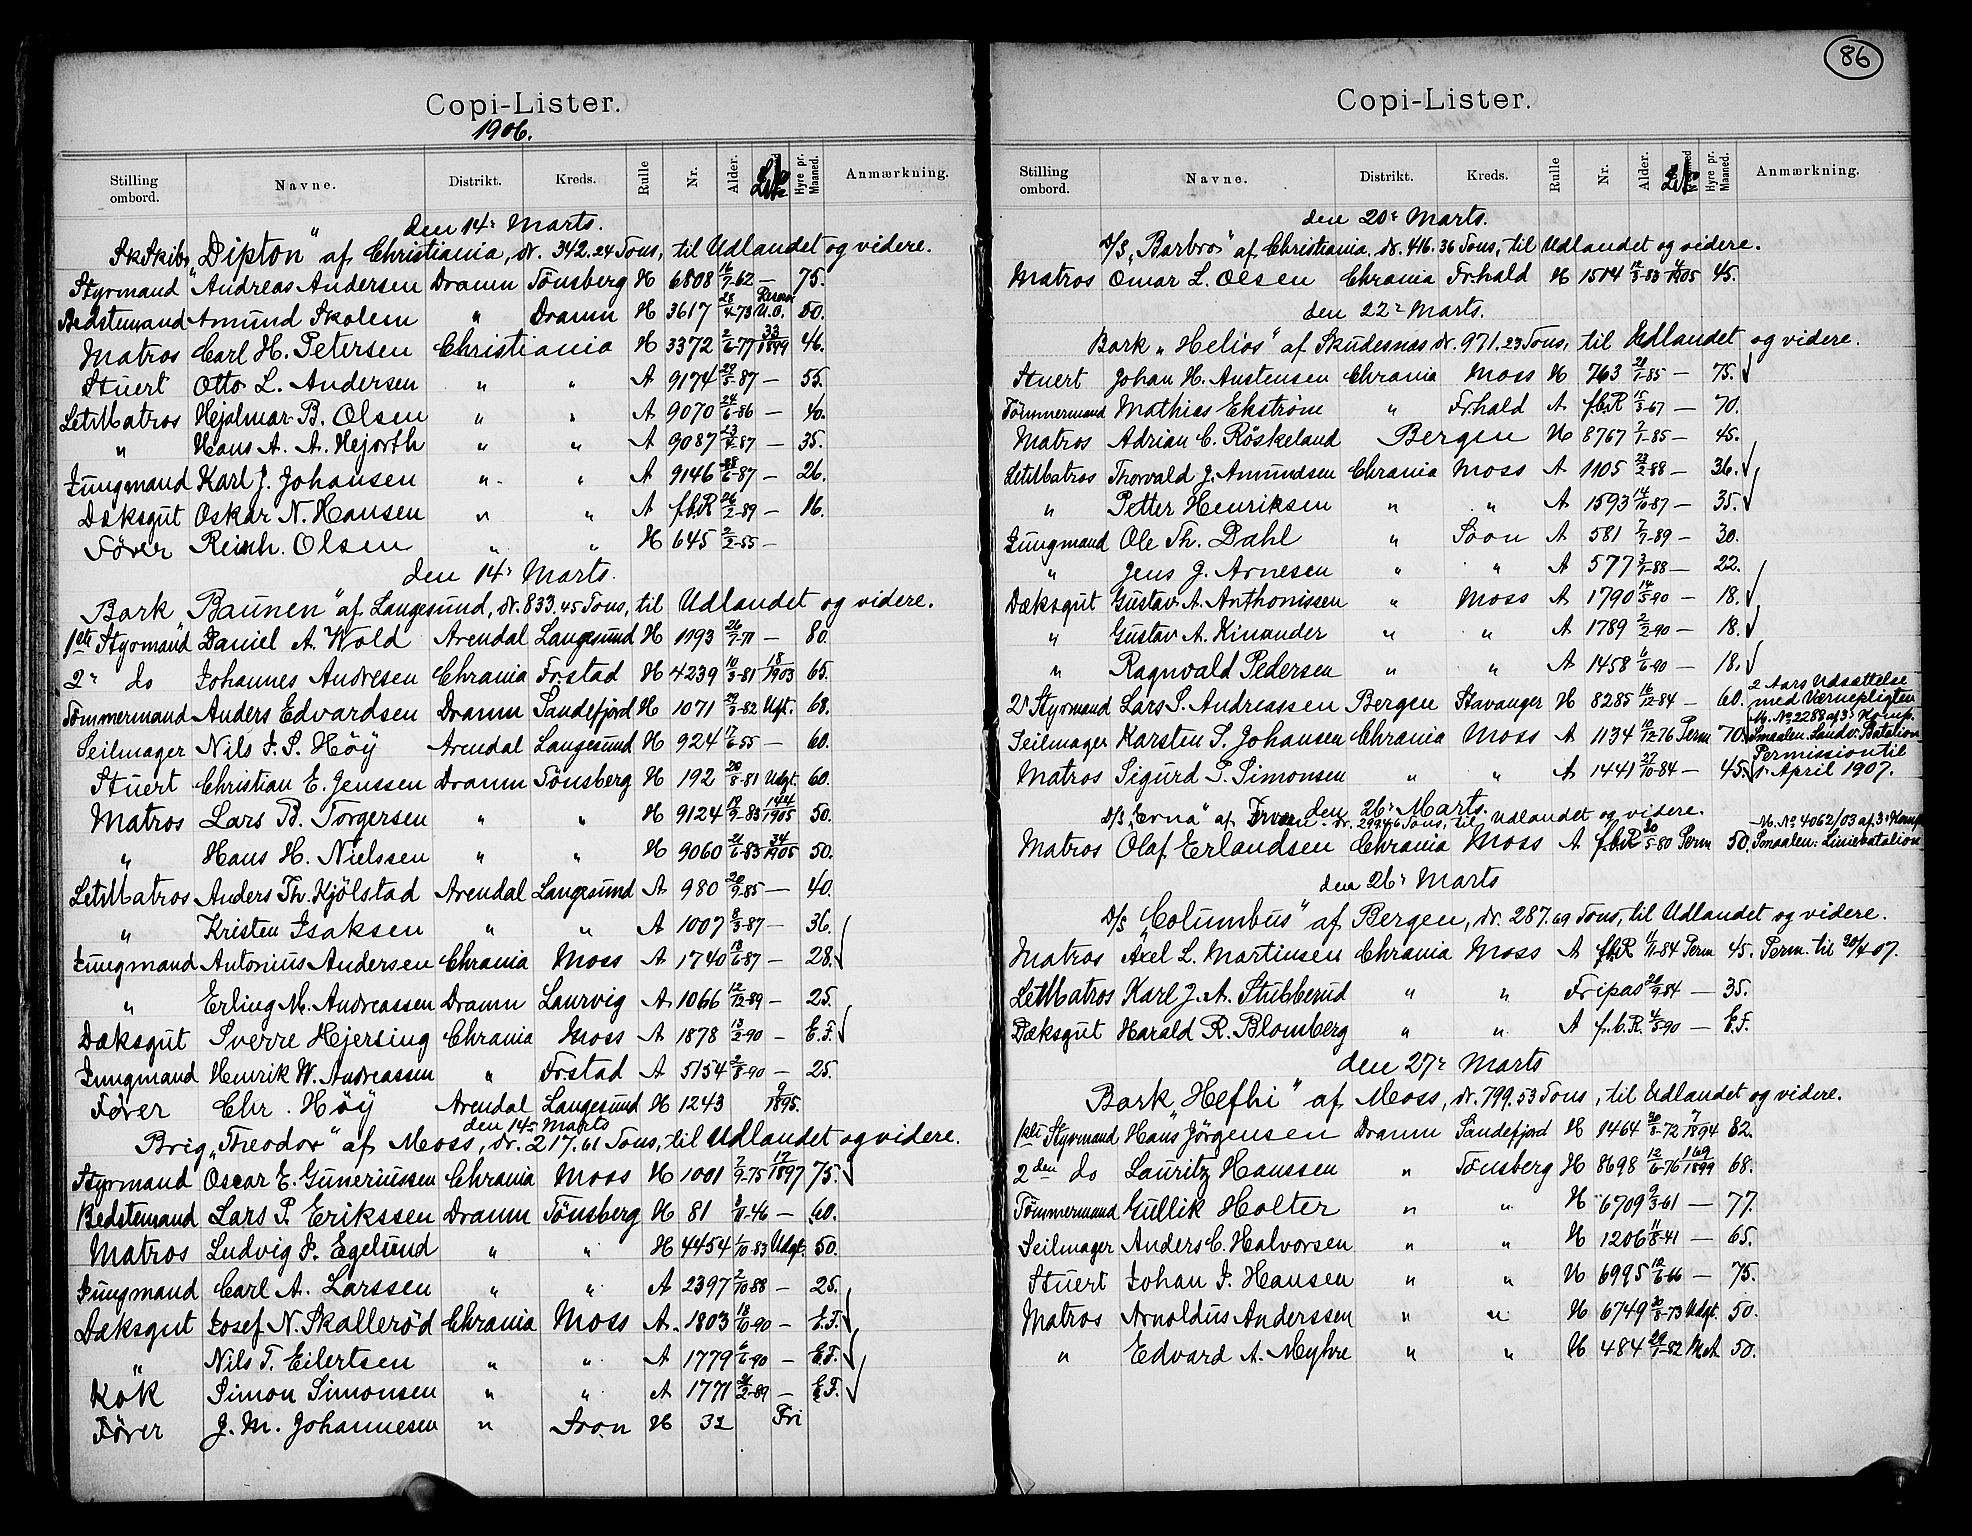 Copi-Lister.
1906.
Stilling ombord. Navne. Distrikt. Kreds. Rulle Nr. Alder. Hyre pr. Maaned. Anmærkning.
den 14de Marts.
SkSkibs „Dipton" af Christiania, dr. 342.24 Tons, til Udlandet og videre.
Styrmand Andreas Andersen Dramn Tönsberg H 6808 16/7-62 — 75.
Bedstemand Amund Skolem " Dramn H 3617 28/4-73 U.O. 50.
Matros Carl H. Petersen Christiania H 3372 2/6-77 33/1899 46.
Stuert Otto L. Andersen " " A 9174 29/5-87 — 55.
LetMatros Hjalmar B. Olsen " " A 9070 24/6-86 — 40.
" Hans A. A. Hejorth " " A 9087 -87 — 35.
Jungmand Karl J. Johansen " " A 9146 28/6-87 — 26.
Dæksgut Oskar N. Hansen " " A f.b.R 26/2-89 — 16.
Fører Reinh. Olsen " " H 645 2/2-55 —
den 14de Marts.
Bark „Baunen" af Langesund, dr. 833.45 Tons, til Udlandet og videre.
1ste Styrmand Daniel A. Wold Arendal Langesund H 1193 26/7-71 — 80.
2. do Johannes Andresen Chrania Frstad H 4239 10/3-81 18/1903 65.
Tömmermand Anders Edvardsen Dramn Sandefjord H 1071 29/3-82 Udgt. 68.
Seilmager Nils J. S. Höy Arendal Langesund H 924 17/6-55 — 60.
Stuert Christian E. Jenssen Dramn Tönsberg H 192 20/8-81 Udgt. 60.
Matros Lars B. Torgersen " " H 9124 19/9-83 144/1905 50.
" Hans H. Nielssen " " H 9060 21/6-83 34/1905 50.
LetMatros Anders Th. Kjölstad Arendal Langesund A 980 20/9-85 — 40.
" Kristen Isaksen " " A 1007 8/3-87 — 36.
Jungmand Antonius Andersen Chrania Moss A 1740 18/6-87 — 28.
" Erling M. Andreassen Dramn Laurvig A 1066 12/12-89 — 25.
Dæksgut Sverre Hjersing Chrania Moss A 1878 13/2-90 — E.F.
Jungmand Henrik W. Andreassen " Frstad A 5154 2/8-90 — 25.
Fører Chr. Höy Arendal Langesund H 1243 9/1895.
den 14de Marts
Brig „Theodor" af Moss, dr. 217.61 Tons, til Udlandet og videre.
Styrmand Oscar E. Guneriussen Chrania Moss H 1001 7/7-75 17/1897 75.
Bedstemand Lars P. Erikssen Dramn Tönsberg H 81 8/11-46 — 60.
Matros Ludvig J. Egelund " " H 4454 1/10-83 Udgt. 50.
Jungmand Carl A. Larssen " " A 2397 2/10-88 — 25.
Dæksgut Josef N. Skalleröd Chrania Moss A 1803 18/6-90 — E.F.
" Nils T. Eilertsen " " A 1779 6/6-90 — E.F.
Kok Simon Simonsen " " A 1771 /2-89 — E.F.
Fører J. M. Johannesen " Soon H 32 Fri
86
Copi-Lister.
Stilling ombord. Navne. Distrikt. Kreds. Rulle Nr. Alder. Hyre pr. Maaned. Anmærkning.
den 20de Marts.
D/S „Barbro" af Christiania. dr. 416.36 Tons, til Udlandet og videre.
Matros Omar L. Olsen Chrania Frhald H 1504 12/3-83 /1905 45.
den 22de Marts.
Bark „Helios" af Skudesnæs dr. 971.23 Tons, til Udlandet og videre.
Stuert Johan H. Austensen Chrania Moss H 763 21/1-85 — 75.
Tömmermand Mathias Ekström " Frhald A f.b.R 15/3-67 — 70.
Matros Adrian C. Röskeland Bergen H 8767 7/1-85 — 45.
LetMatros Thorvald J. Amundsen Chrania Moss A 1105 22/2-88 — 36.
" Petter Henriksen " " A 1593 14/10-87 — 35.
Jungmand Ole Th. Dahl " Soon A 581 7/7-89 — 30.
" Jens J. Arnesen " " A 577 3/1-88 — 22.
Dæksgut Gustav A. Anthonissen " Moss A 1790 14/5-90 — 18.
" Gustav A. Kinander " " A 1789 2/2-90 — 18.
" Ragnvald Pedersen " " A 1458 1/6-90 — 18.
2. Styrmand Lars S. Andreassen Bergen Stavanger H 8285 16/12-84 — 60. 2 Aars Udsættelse med Værnepligten
Seilmager Karsten S. Johansen Chrania Moss A 1134 10/12-76 Perm 70. M. No 2288 af 3. Komp. Smaalen. Landv. Batalion
Matros Sigurd S. Simonsen " " A 1441 27/10-84 — 45. Permission til 1. April 1907.
den 26de Marts.
D/S „Erna" af dr. Tons, til Udlandet og videre.
Matros Olaf Erlandsen Chrania Moss A f.b.R 30/5-80 Perm 50. M. No 4062/03 af 3. Komp Smaalen. Liniebatalion
den 26de Marts
D/S „Columbus" af Bergen, dr. 287.69 Tons, til Udlandet og videre.
Matros Axel L. Martinsen Chrania Moss A f.b.R 11/11-84 Perm 45. Perm. til 30/4 07.
LetMatros Karl J. A. Stubberud " " Fripas 20/9-84 — 35.
Dæksgut Harald R. Blomberg " " A f.b.R. 4/3-90 — E.F.
den 27de Marts
Bark „Hefhi" af Moss, dr. 799.53 Tons, til Udlandet og videre.
1ste Styrmand Hans Jörgensen Dramn Sandefjord H 1464 20/8-72 7/1894 82.
2den do Lauritz Hanssen " Tönsberg H 8698 12/6-76 169/1899 68.
Tömmermand Gullik Holter " " H 6709 9/3-61 — 77.
Seilmager Anders C. Halvorsen " " H 1206 11/8-41 — 65.
Stuert Johan J. Hansen " " H 6995 12/6-66 — 75.
Matros Arnoldus Anderssen " " H 6749 30/8-73 Udgt. 50.
" Edvard A. Myhre " " H 484 29/1-82 Mat 50.